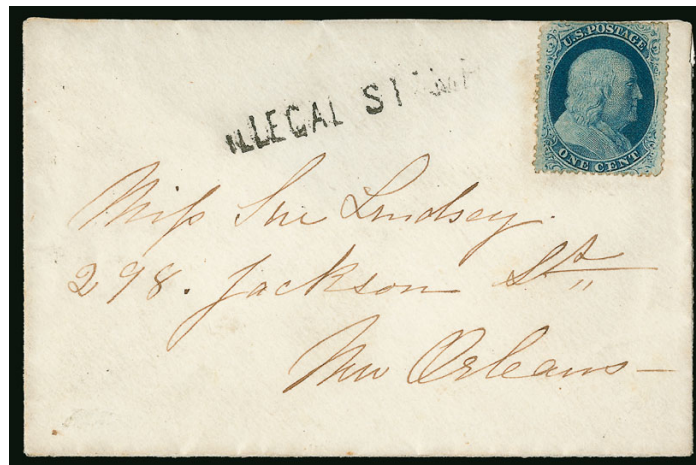 U.S. POSTAGE
ONE CENT
ILLEGAL
Miss Sue Lindsey.
298. Jackson St.
New Orleans